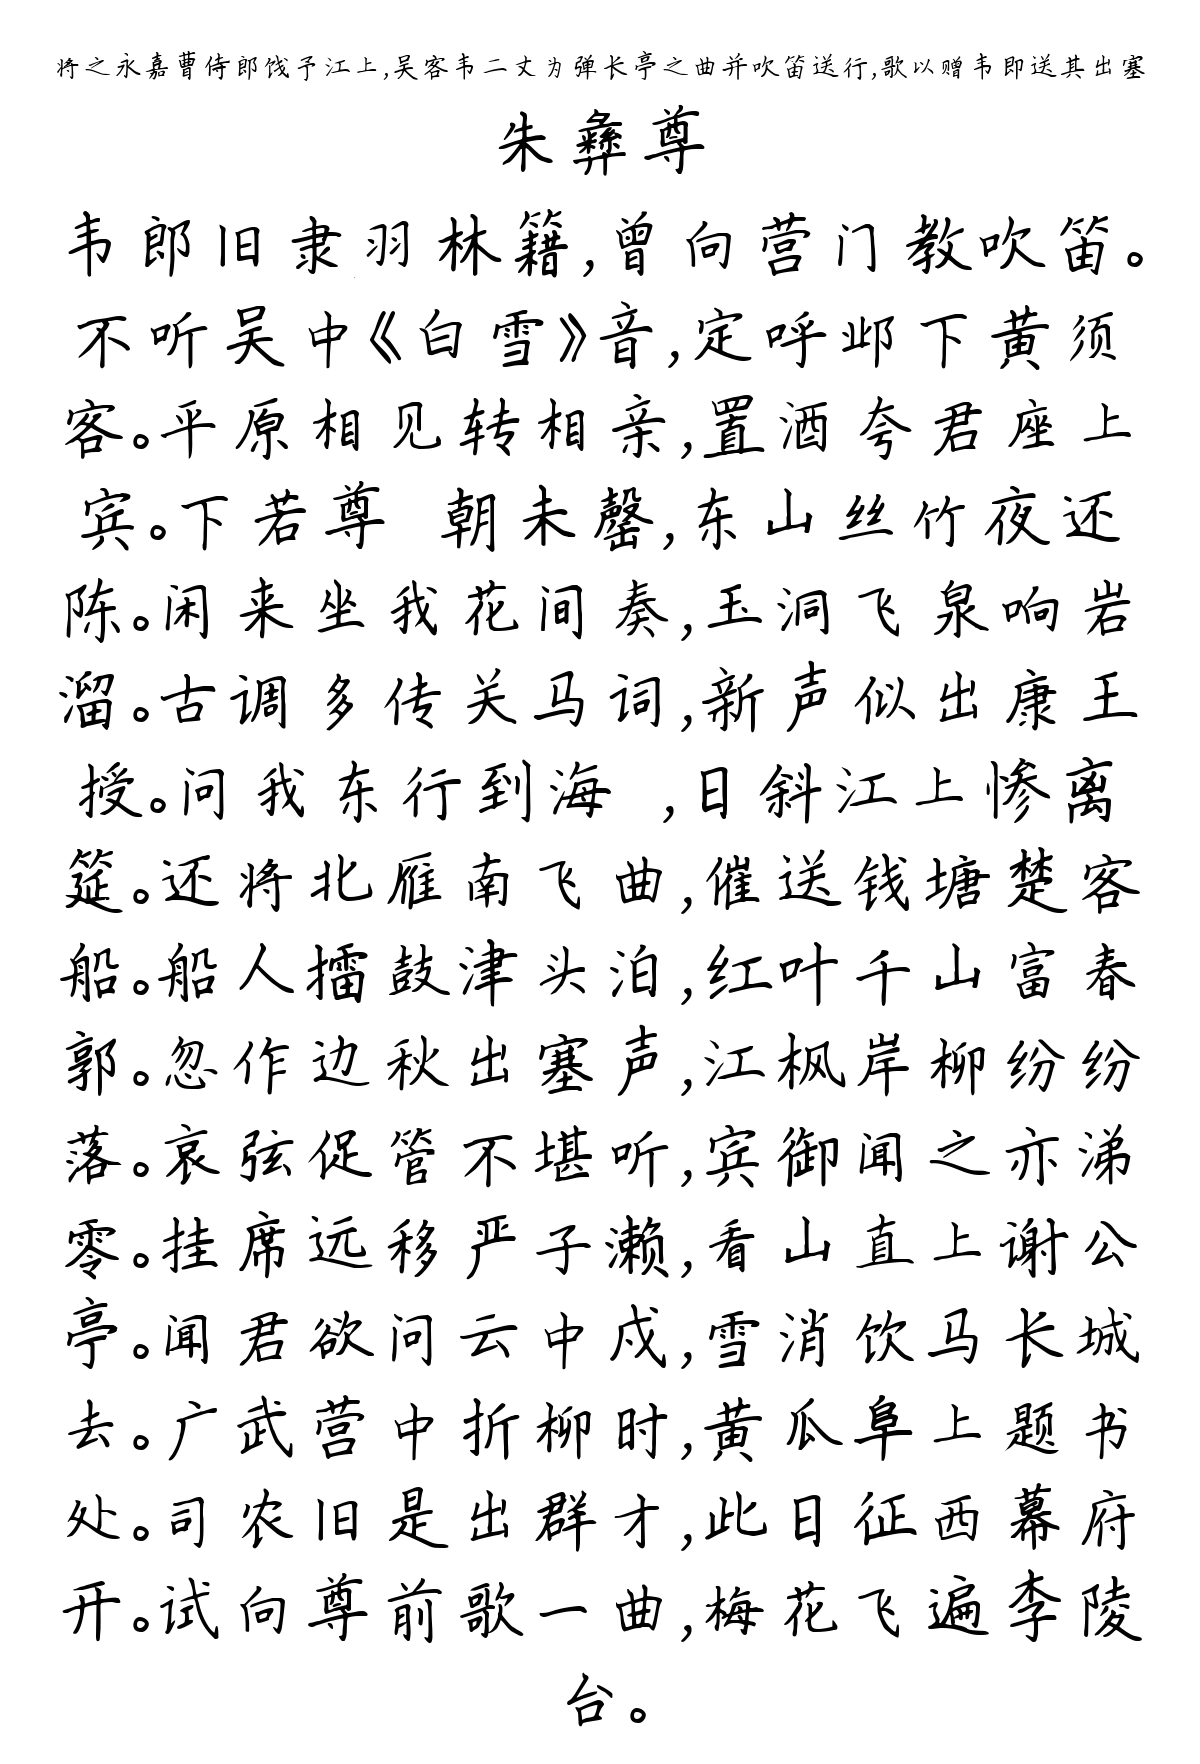 将之永嘉曹侍郎饯予江上,吴客韦二丈为弹长亭之曲并吹笛送行,歌以赠韦即送其出塞
朱彝尊
韦郎旧隶羽林籍,曾向营门教吹笛。
不听吴中《白雪》音,定呼邺下黄须
客。平原相见转相亲,置酒夸君座上
宾。下若尊 朝未罄,东山丝竹夜还
陈。闲来坐我花间奏,玉洞飞泉响岩
溜。古调多传关马词,新声似出康王
授。问我东行到海 ,日斜江上惨离
筵。还将北雁南飞曲,催送钱塘楚客
船。船人擂鼓津头泊,红叶千山富春
郭。忽作边秋出塞声,江枫岸柳纷纷
落。哀弦促管不堪听,宾御闻之亦涕
零。挂席远移严子濑,看山直上谢公
亭。闻君欲问云中戍,雪消饮马长城
去。广武营中折柳时,黄瓜阜上题书
处。司农旧是出群才,此日征西幕府
开。试向尊前歌一曲,梅花飞遍李陵
台。